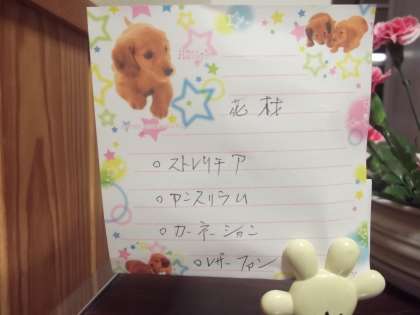 花材
○ストレリチア
○アンスリラム
○カーネーション
○レザーファン